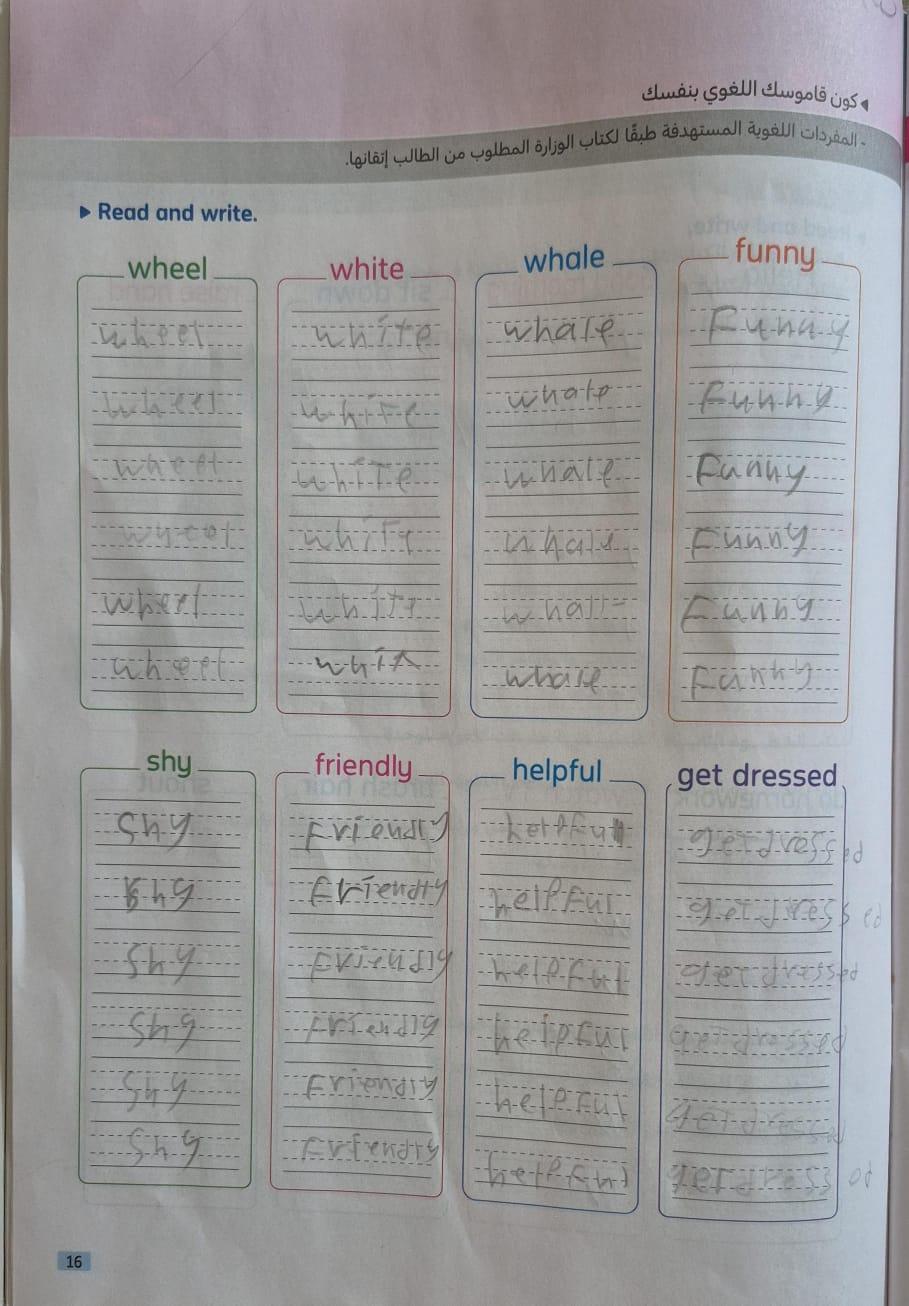 كون قاموسك اللغوي بنفسك
- المفردات اللغوية المستهدفة طبقًا لكتاب الوزارة المطلوب من الطالب إتقانها.
Read and write.
wheel white whale funny
wheel white whale Funny
wheel white whale Funny
wheel white whale Funny
wheel white whale Funny
wheel white Funny
wheel whale Funny
shy friendly helpful get dressed
shy friendly helpful
shy Friendly helpful
shy helpful
shy helpful
shy Friendly helpful
shy Friendly helpful
16